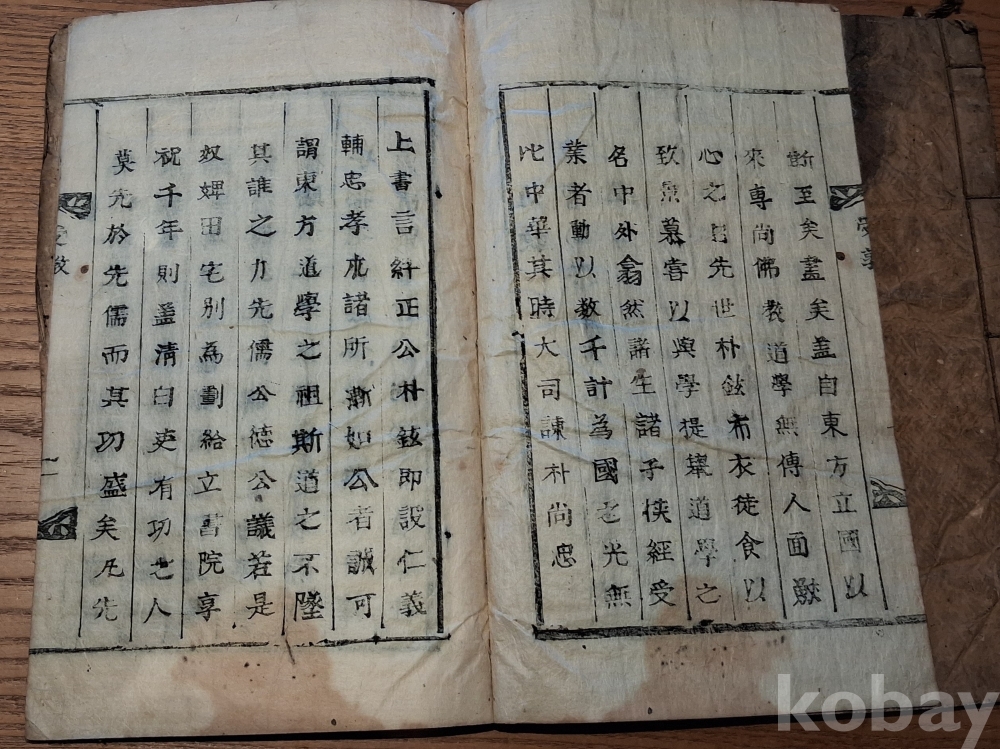 斬至矣盡矣盖自東方立國以
來專尚佛教道學無傳人面獸
心之日先世朴鉉布衣徒食以
致景慕嘗以興學提撕道學之
名中外翕然諸生諸子俠經受
業者動以数千計為國之光無
比中華其時大司諫朴尚忠
上書言糾正公朴鉉即設仁義
輔忠孝水諸所漸如公者誠可
謂東方道學之祖斯道之不墜
其誰之力先儒公德公議若是
奴婢田宅別為劃給立書院享
祝千年則盖清白吏有功之人
莫先於先儒而其功盛矣凡先
受教
受教
kobay